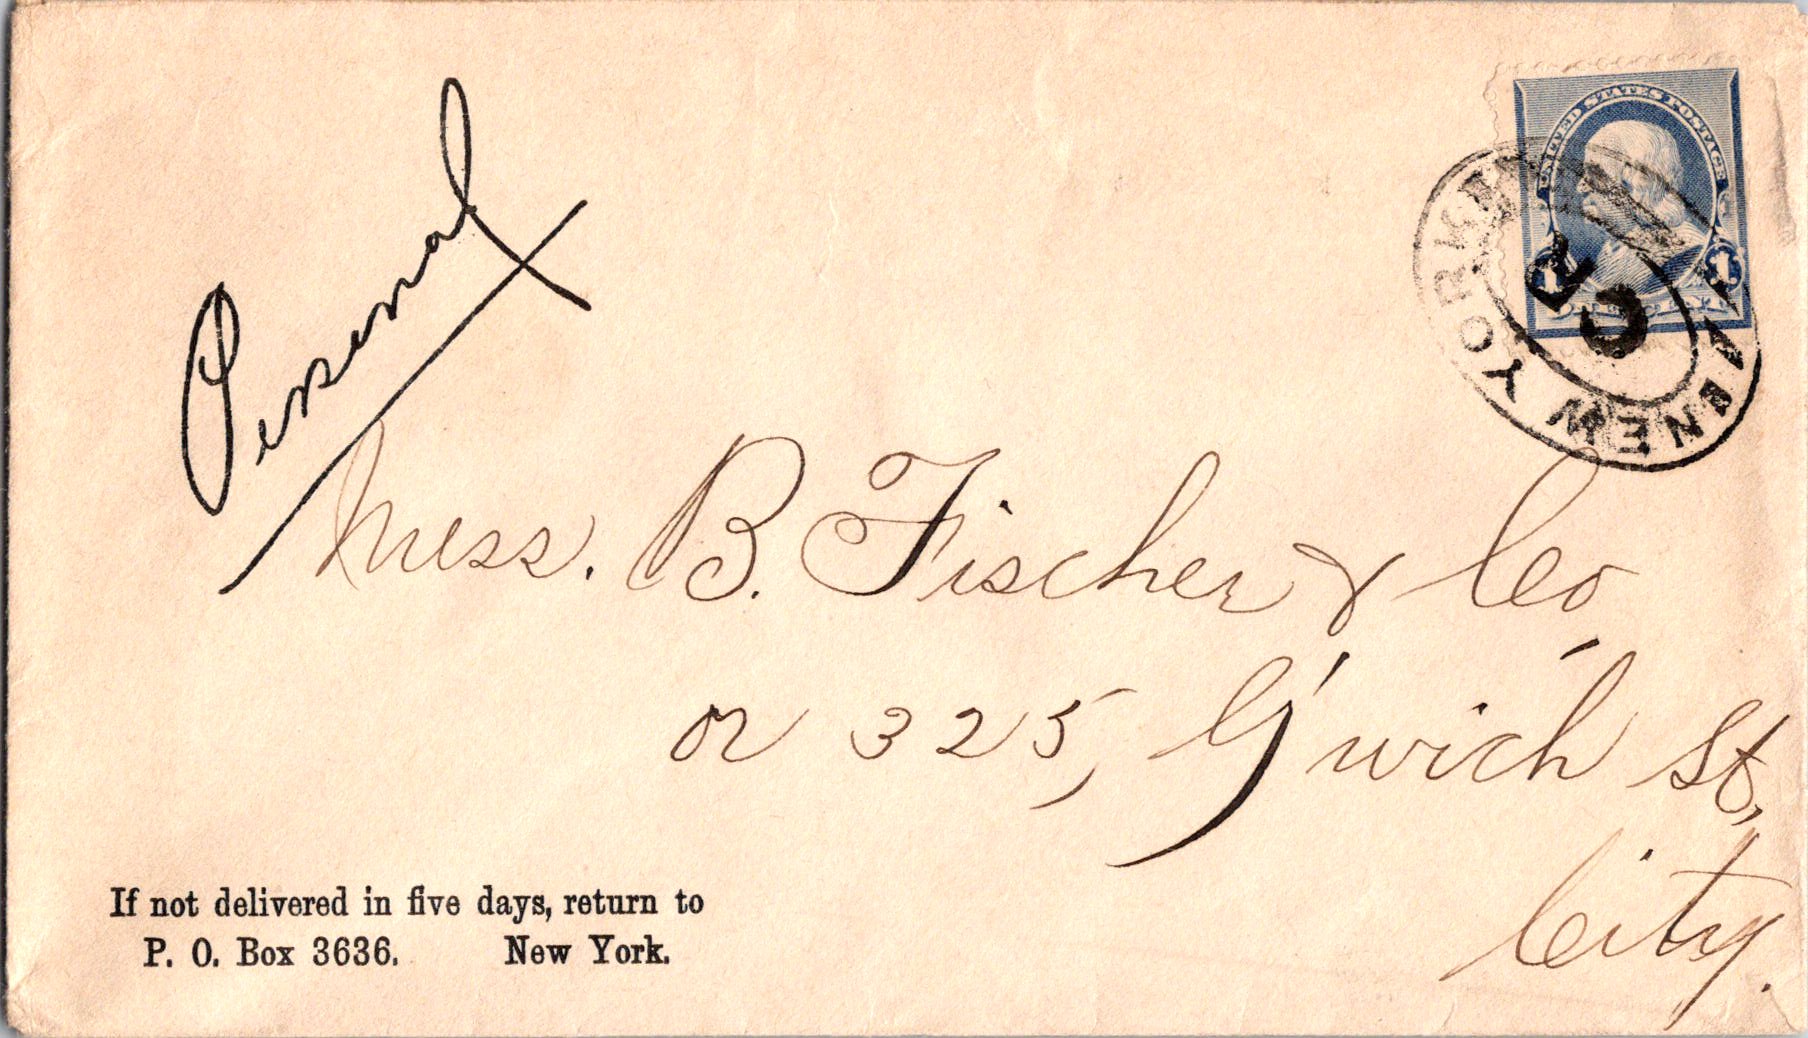 Personal
UNITED STATES POSTAGE
1 1
NEW YORK
Mess. B. Fischer & Co
325, G'wich St,
City.
If not delivered in five days, return to
P. O. Box 3636. New York.